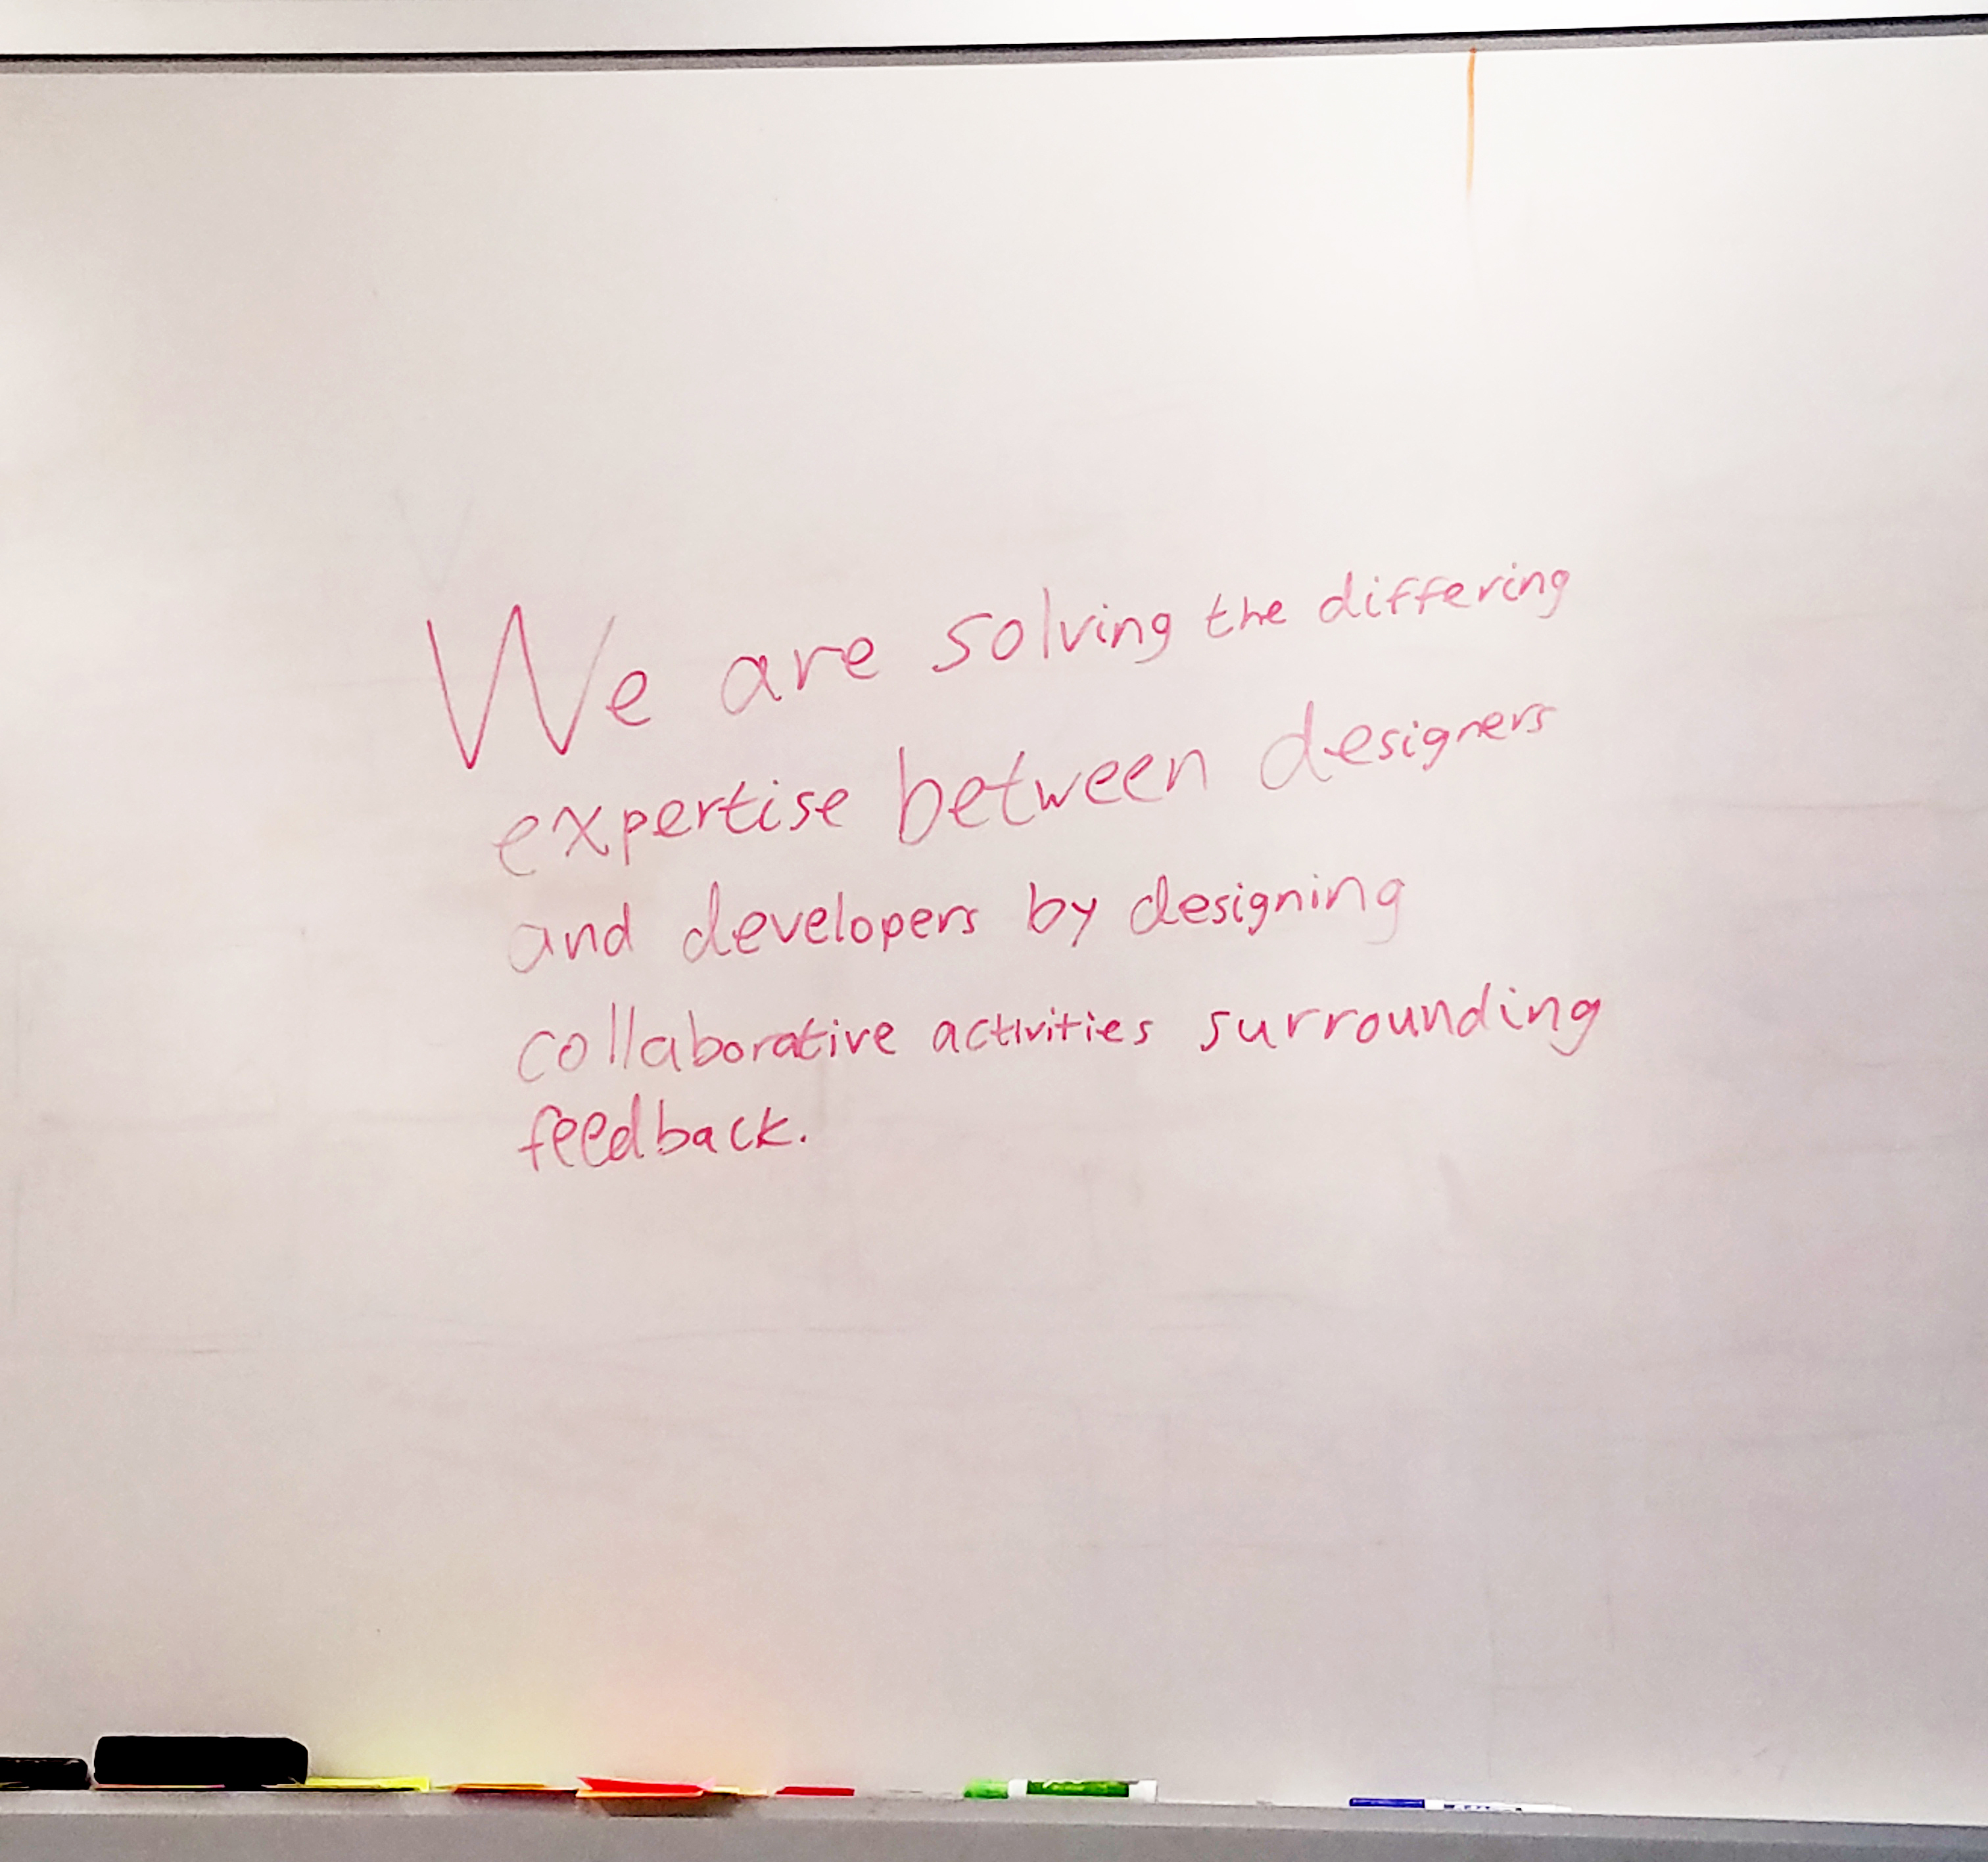 We are solving the differing
expertise between designers
and developers by designing
collaborative activities surrounding
feedback.